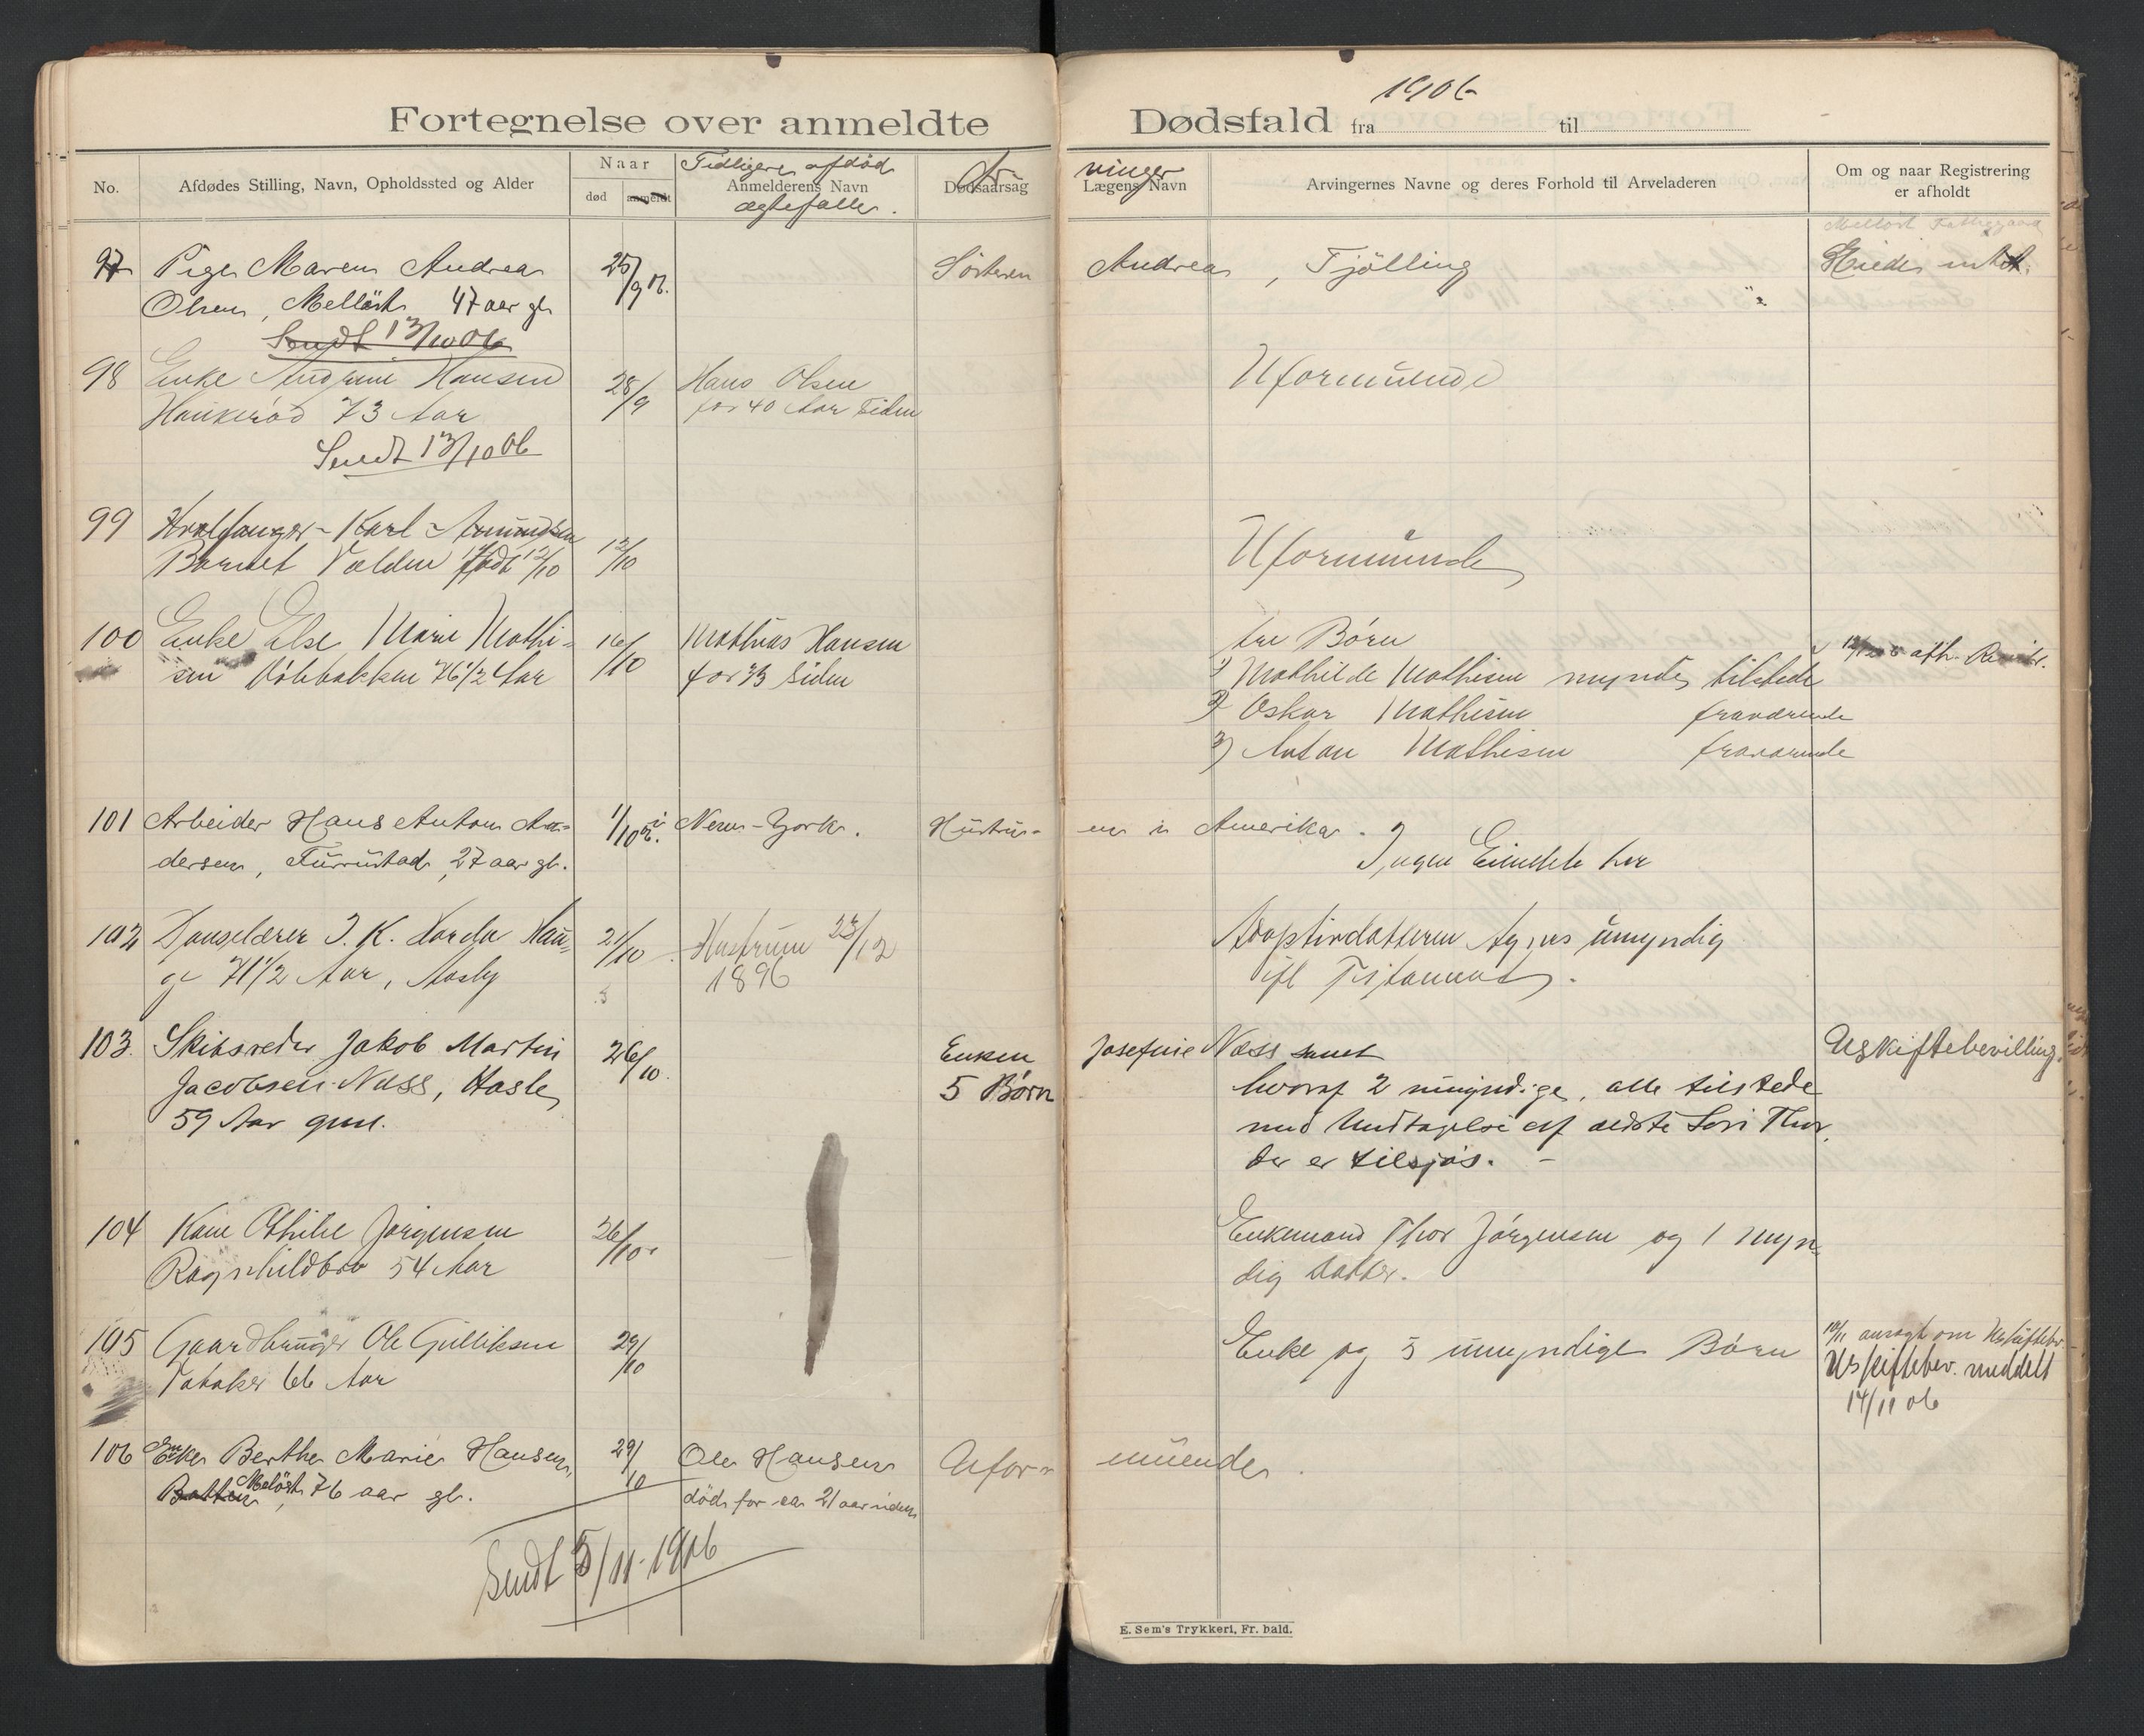 1906
Fortegnelse over anmeldte Dødsfald fra til
No.
Afdødes Stilling, Navn, Opholdssted og Alder
Naar
død
anmeldt
Tidligere afdød
Anmelderens Navn
ægtefælle.
Dødsaarsag
Ar-
vinger
Lægens Navn
Arvingernes Navne og deres Forhold til Arveladeren
Om og naar Registrering
er afholdt
97 Pige Maren Andrea 25/9 06. Søsteren Andrea, Tjølling Eiede intet.
Olsen, Melløst 47 aar gl
Sendt 13/10 06
98 Enke Hansen 28/9 Hans Olsen Uformuende
Haukerød 73 Aar for 40 Aar siden
Sendt 13/10 06
99 Hvalfanger Karl Amundsen 12/10 Uformuende
Barnet Volden født 12/10
100 Enke Else Marie Mathi= 16/10 Mathias Hansen tre Børn
sen 76 1/2 Aar for 13 siden
1) Mathilde Mathisen myndig tilstede
2) Oskar Mathisen fraværende
3) Anton Mathisen fraværende
101 Arbeider Hans Anton An= 1/10 06. i New-York. Hustru- en i Amerika.
dersen, Furustad, 27 aar gl. Ingen Eiendele her
102 J. K. Horda Hau= 21/10 Hustruen 23/12 Adoptivdatteren Agnes umyndig
ge 71 1/2 Aar, Aasly 1896 ifl Testament.
103. Skibsreder Jakob Martin 26/10. Enken Josefine Næss samt Uskiftebevilling.
Jacobsen Næss, Hasle 5 Børn hvoraf 2 umyndige, alle tilstede
59 Aar gml. med Undtagelse af ældste Søn Thor,
der er tilsjøs.
104 Kone Othilie Jørgensen 26/10. Enkemand Thor Jørgensen og 1 myn
Ragnhildbro 54 Aar dig datter.
105 Gaardbruger Ole Gulliksen 29/10 Enke og 5 umyndige Børn 10/11 ansøgt om Uskiftebev.
66 Aar Uskiftebev. meddelt
14/11 06
106 Enke Berthe Marie Hansen, 29/10 Ole Hansen Ufor- muende.
Meløst, 76 aar gl. død for ca 21 aar siden
Sendt 5/11-1906
E. Sem's Trykkeri, Fr. hald.